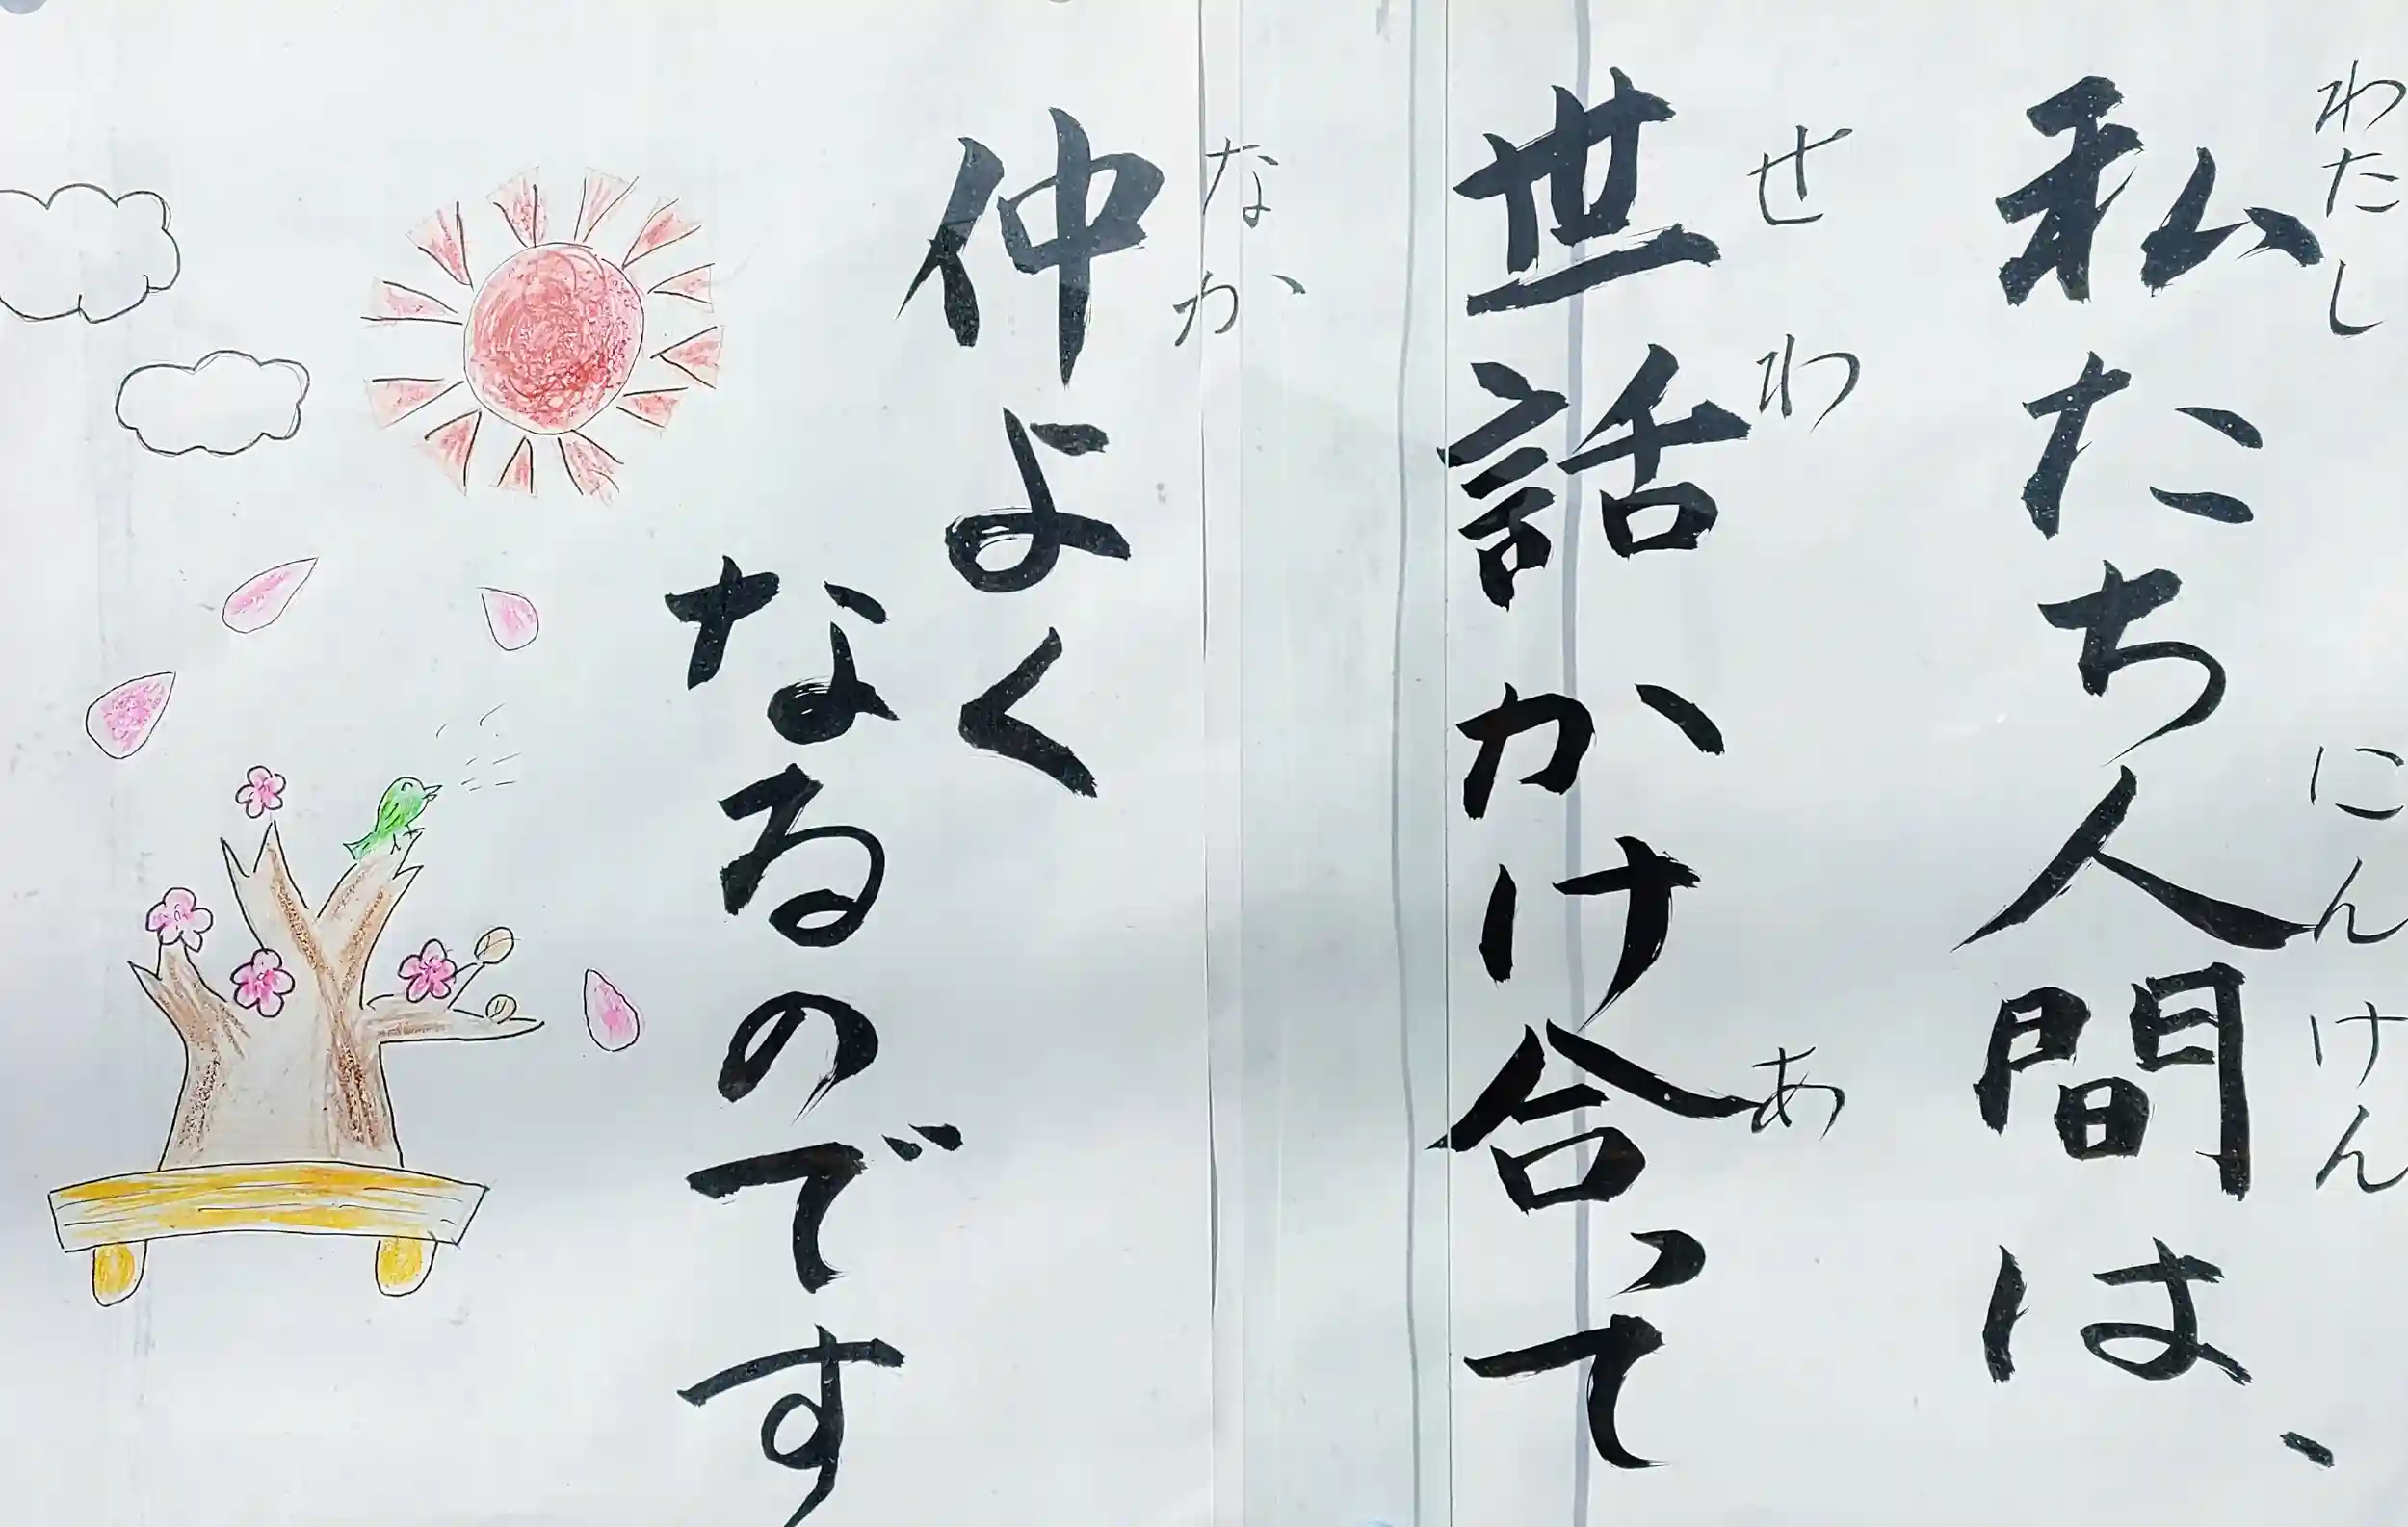 私たち人間は、
わたし にんけん
世話かけ合って
せわ あ
仲よく
なか
なるのです